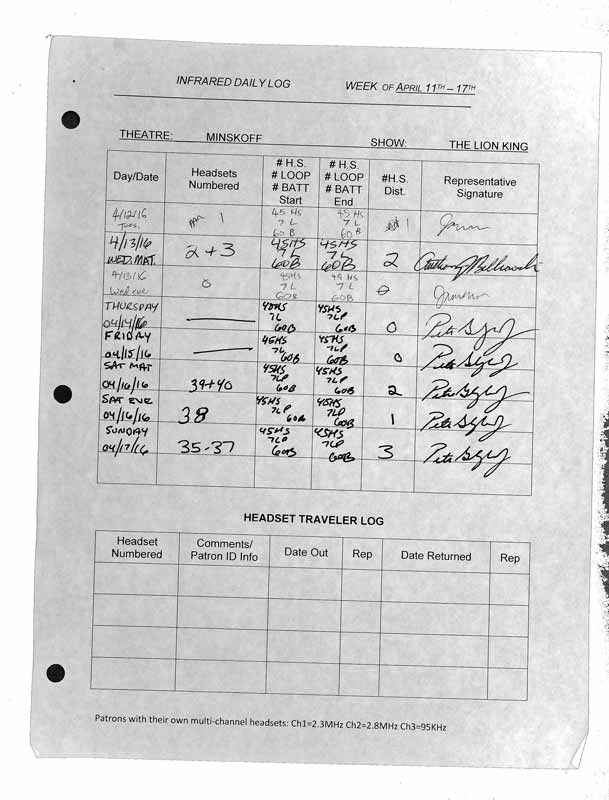 INFRARED DAILY LOG WEEK OF APRIL 11TH – 17TH
THEATRE: MINSKOFF SHOW: THE LION KING
Day/Date Headsets Numbered # H.S. # LOOP # BATT Start # H.S. # LOOP # BATT End #H.S. Dist. Representative Signature
4/12/16 TUES. 1 45 HS 7 L 60 B 45 HS 7 L 60 B 1
4/13/16 WED. MAT. 2+3 45HS 7L 60B 45HS 7L 60B 2
4/13/16 Wed eve 0 45HS 7L 60B 45HS 7L 60B 0
THURSDAY 04/14/16 45HS 7L 60B 45HS 7LP 60B 0
FRIDAY 04/15/16 45HS 7L 60B 45HS 7LP 60B 0
SAT MAT 04/16/16 39+40 45HS 7LP 60B 45HS 7LP 60B 2
SAT EVE 04/16/16 38 45HS 7LP 60B 45HS 7LP 60B 1
SUNDAY 04/17/16 35-37 45HS 7LP 60B 45HS 7LP 60B 3
HEADSET TRAVELER LOG
Headset Numbered Comments/ Patron ID Info Date Out Rep Date Returned Rep
Patrons with their own multi-channel headsets: Ch1=2.3MHz Ch2=2.8MHz Ch3=95KHz